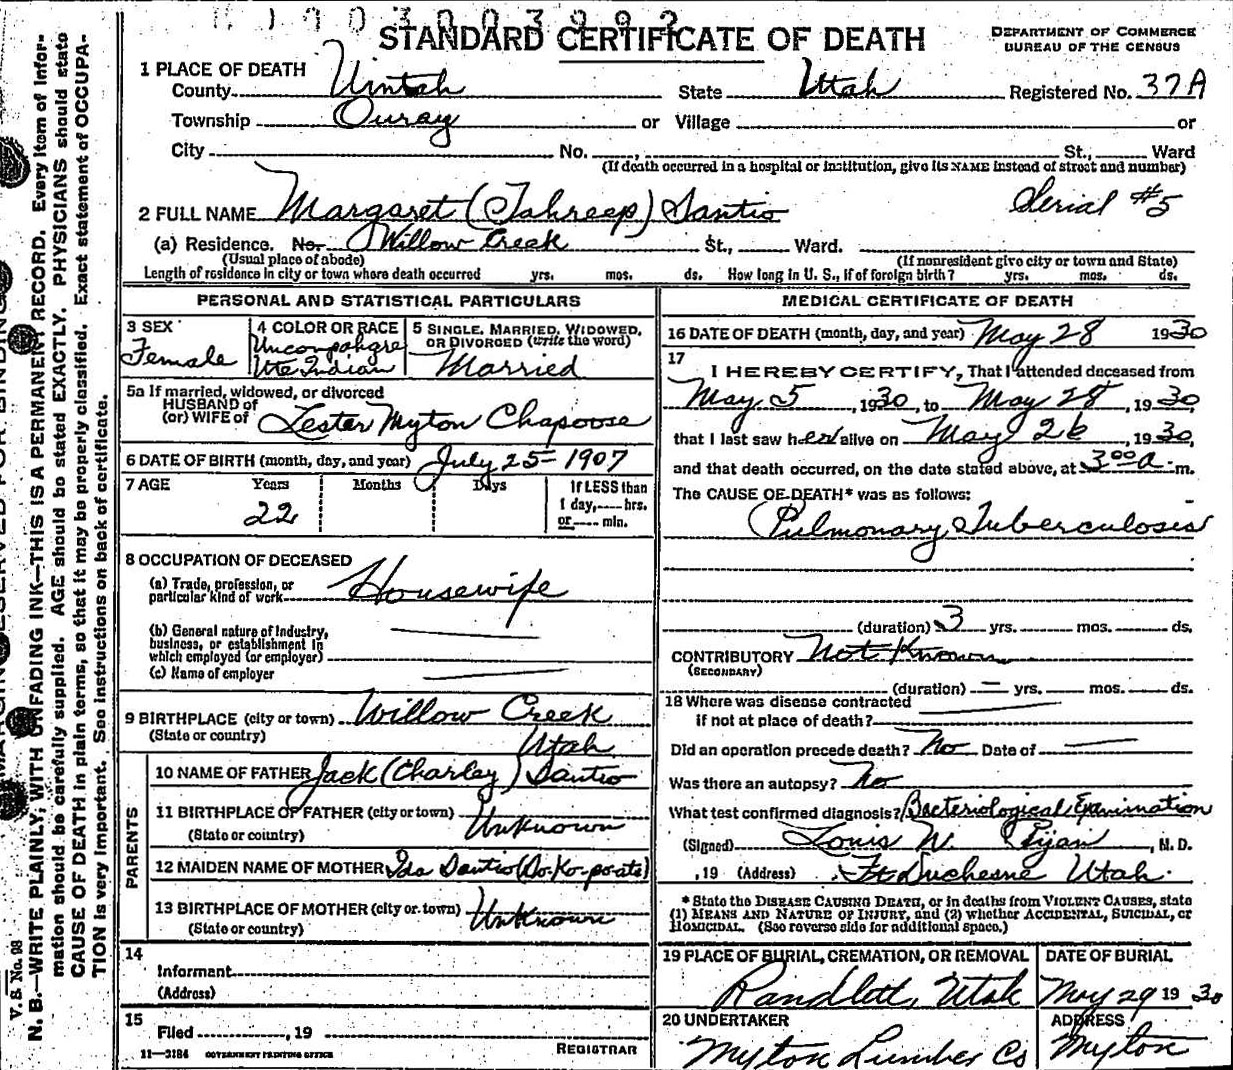 1903003992
STANDARD CERTIFICATE OF DEATH
DEPARTMENT OF COMMERCE
BUREAU OF THE CENSUS
1 PLACE OF DEATH
County Uintah State Utah Registered No. 37A
Township Ouray or Village or
City No. , St., Ward
(If death occurred in a hospital or institution, give its NAME instead of street and number)
2 FULL NAME Margaret (Tahreep) Santio Serial #5
(a) Residence. No. Willow Creek St., Ward.
(Usual place of abode) (If nonresident give city or town and State)
Length of residence in city or town where death occurred yrs. mos. ds. How long in U. S., if of foreign birth? yrs. mos. ds.
PERSONAL AND STATISTICAL PARTICULARS
3 SEX 4 COLOR OR RACE 5 SINGLE, MARRIED, WIDOWED,
OR DIVORCED (write the word)
Female Uncompahgre
Ute Indian Married
5a If married, widowed, or divorced
HUSBAND of
(or) WIFE of Lester Myton Chapoose
6 DATE OF BIRTH (month, day, and year) July 25-1907
7 AGE Years Months Days If LESS than
1 day, hrs.
or min.
22
8 OCCUPATION OF DECEASED
(a) Trade, profession, or
particular kind of work Housewife
(b) General nature of industry,
business, or establishment in
which employed (or employer)
(c) Name of employer
9 BIRTHPLACE (city or town) Willow Creek
(State or country) Utah
PARENTS
10 NAME OF FATHER Jack (Charley) Santio
11 BIRTHPLACE OF FATHER (city or town)
(State or country) Unknown
12 MAIDEN NAME OF MOTHER Ida Santio
13 BIRTHPLACE OF MOTHER (city or town) Unknown
(State or country)
14
Informant
(Address)
15
Filed , 19
REGISTRAR
11-3184 GOVERNMENT PRINTING OFFICE
MEDICAL CERTIFICATE OF DEATH
16 DATE OF DEATH (month, day, and year) May 28 1930
17
I HEREBY CERTIFY, That I attended deceased from
May 5, 1930, to May 28, 1930,
that I last saw her alive on May 26, 1930,
and that death occurred, on the date stated above, at 3 00 a. m.
The CAUSE OF DEATH* was as follows:
Pulmonary Tuberculosis
(duration) 3 yrs. mos. ds.
CONTRIBUTORY Not Known
(SECONDARY)
(duration) – yrs. mos. ds.
18 Where was disease contracted
if not at place of death?
Did an operation precede death? No Date of
Was there an autopsy? No
What test confirmed diagnosis? Bacteriological Examination
(Signed) Louis W. , M. D.
, 19 (Address) Ft Duchesne Utah.
* State the DISEASE CAUSING DEATH, or in deaths from VIOLENT CAUSES, state
(1) MEANS AND NATURE OF INJURY, and (2) whether ACCIDENTAL, SUICIDAL, or
HOMICIDAL. (See reverse side for additional space.)
19 PLACE OF BURIAL, CREMATION, OR REMOVAL DATE OF BURIAL
Randlett, Utah May 29 1930
20 UNDERTAKER ADDRESS
Myton Lumber Co Myton
V. S. No. 98
MARGIN RESERVED FOR BINDING
N. B.—WRITE PLAINLY, WITH UNFADING INK—THIS IS A PERMANENT RECORD. Every item of infor-
mation should be carefully supplied. AGE should be stated EXACTLY. PHYSICIANS should state
CAUSE OF DEATH in plain terms, so that it may be properly classified. Exact statement of OCCUPA-
TION is very important. See instructions on back of certificate.